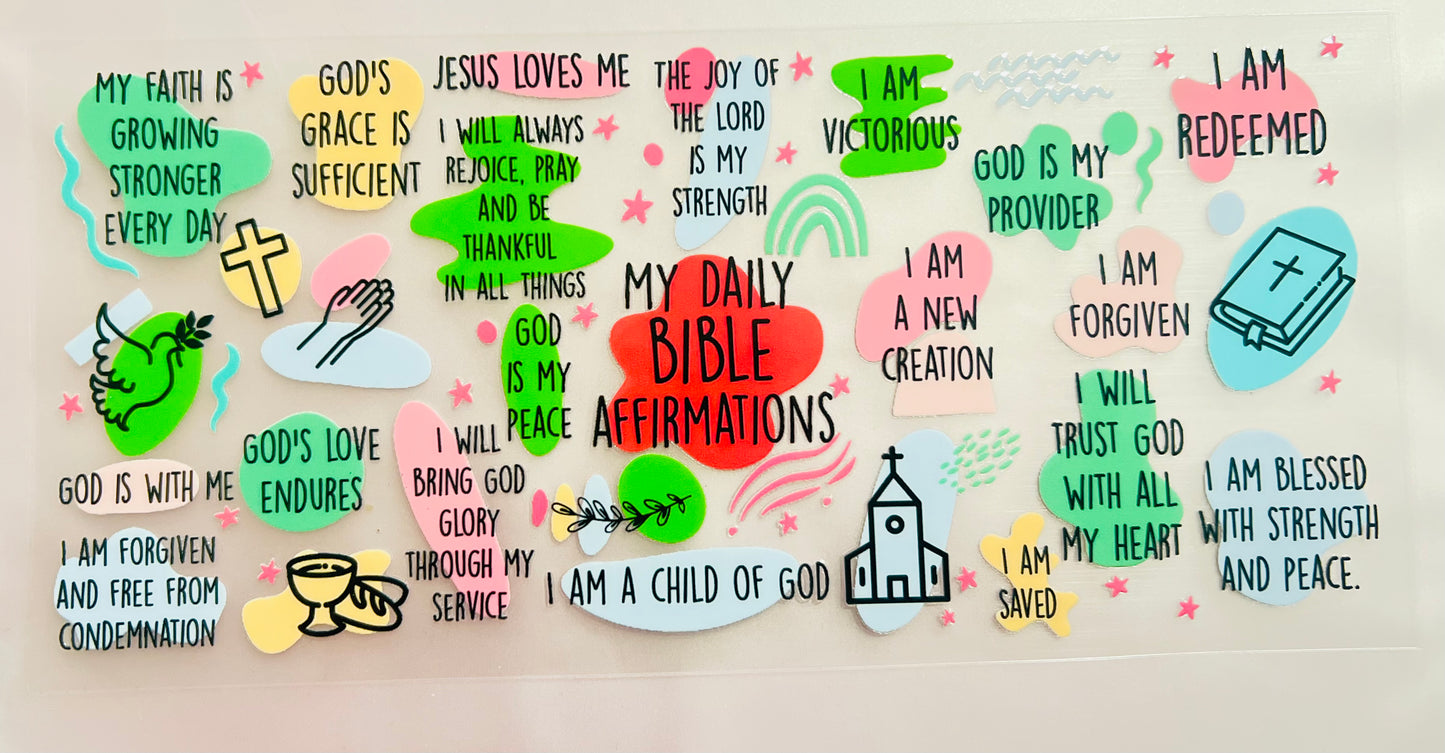 MY FAITH IS
GROWING
STRONGER
EVERY DAY
GOD'S
GRACE IS
SUFFICIENT
JESUS LOVES ME
I WILL ALWAYS
REJOICE, PRAY
AND BE
THANKFUL
IN ALL THINGS
THE JOY OF
THE LORD
IS MY
STRENGTH
I AM
VICTORIOUS
GOD IS MY
PROVIDER
I AM
REDEEMED
GOD
IS MY
PEACE
MY DAILY
BIBLE
AFFIRMATIONS
I AM
A NEW
CREATION
I AM
FORGIVEN
GOD IS WITH ME
GOD'S LOVE
ENDURES
I WILL
BRING GOD
GLORY
THROUGH MY
SERVICE
I WILL
TRUST GOD
WITH ALL
MY HEART
I AM BLESSED
WITH STRENGTH
AND PEACE.
I AM FORGIVEN
AND FREE FROM
CONDEMNATION
I AM A CHILD OF GOD
I AM
SAVED